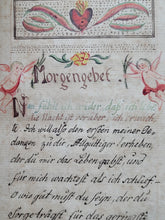 Morgengebet.
Nun fühl ich wieder, daß ich bin
die Nacht ist vorüber, ich erwache
te. Ich will also den ersten meiner Ge-
danken zu dir, Allgütiger! erheben,
der du mir das Leben gabst, und
für mich wachtest als ich schlief.
O wie gut müßt du seyn, der du
Sorge trägst für das geringste